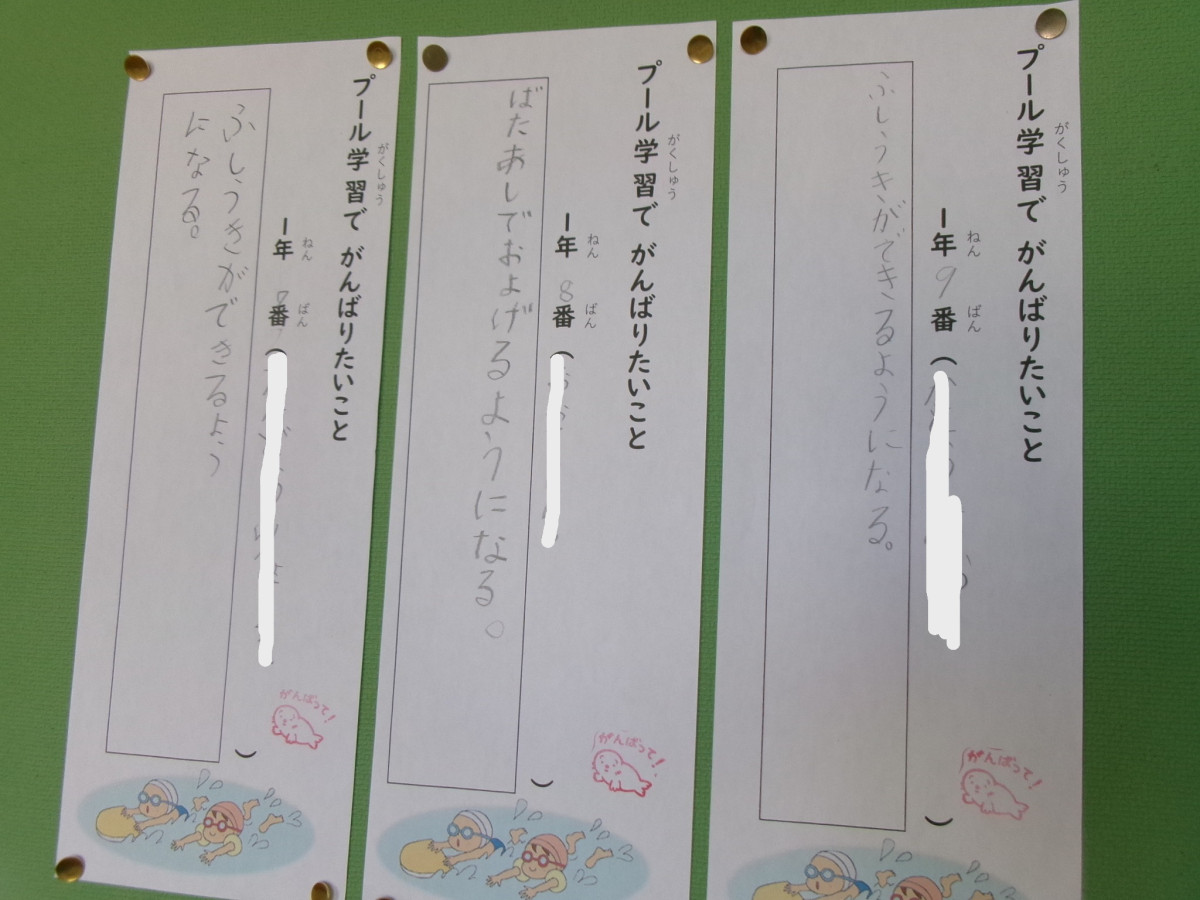 プール学習で がんばりたいこと
がくしゅう
1年 9番 (
ねん ばん
ふしうきができるようになる。
)
がんばって!
プール学習で がんばりたいこと
がくしゅう
1年 8番 (
ねん ばん
ばたあしでおよげるようになる。
)
がんばって!
プール学習で がんばりたいこと
がくしゅう
1年 7番 (
ねん ばん
ふしうきができるよう
になる。
)
がんばって!